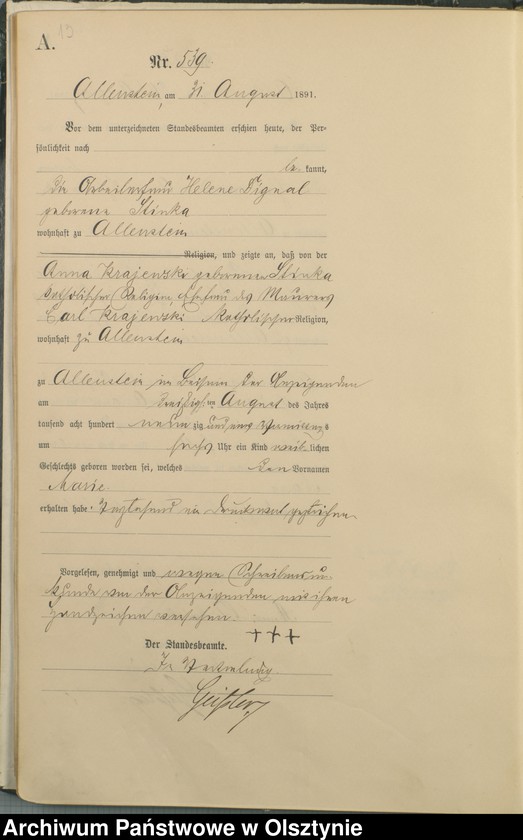 A.
Nr. 539.
Allenstein, am 31 August 1891.
Vor dem unterzeichneten Standesbeamten erschien heute, der Per-
sönlichkeit nach
be kannt,
die Arbeiterfrau Helene Dignal
geborene Stinka
wohnhaft zu Allenstein
Religion, und zeigte an, daß von der
Anna Krajewski geborenen Stinka
katholischer Religion, Ehefrau des Maurers
Carl Krajewski katholischer Religion,
wohnhaft zu Allenstein
zu Allenstein im Beisein der Anzeigenden
am dreißigsten August des Jahres
tausend acht hundert neunzig und eins Vormittags
um sechs Uhr ein Kind weib lichen
Geschlechts geboren worden sei, welches den Vornamen
Marie
erhalten habe. Vorstehend ein Druckwort gestrichen.
Vorgelesen, genehmigt und wegen Schreibensun-
kunde von der Anzeigenden mit ihrem
Handzeichen versehen.
+++
Der Standesbeamte.
In Vertretung
Geißler
Archiwum Państwowe w Olsztynie